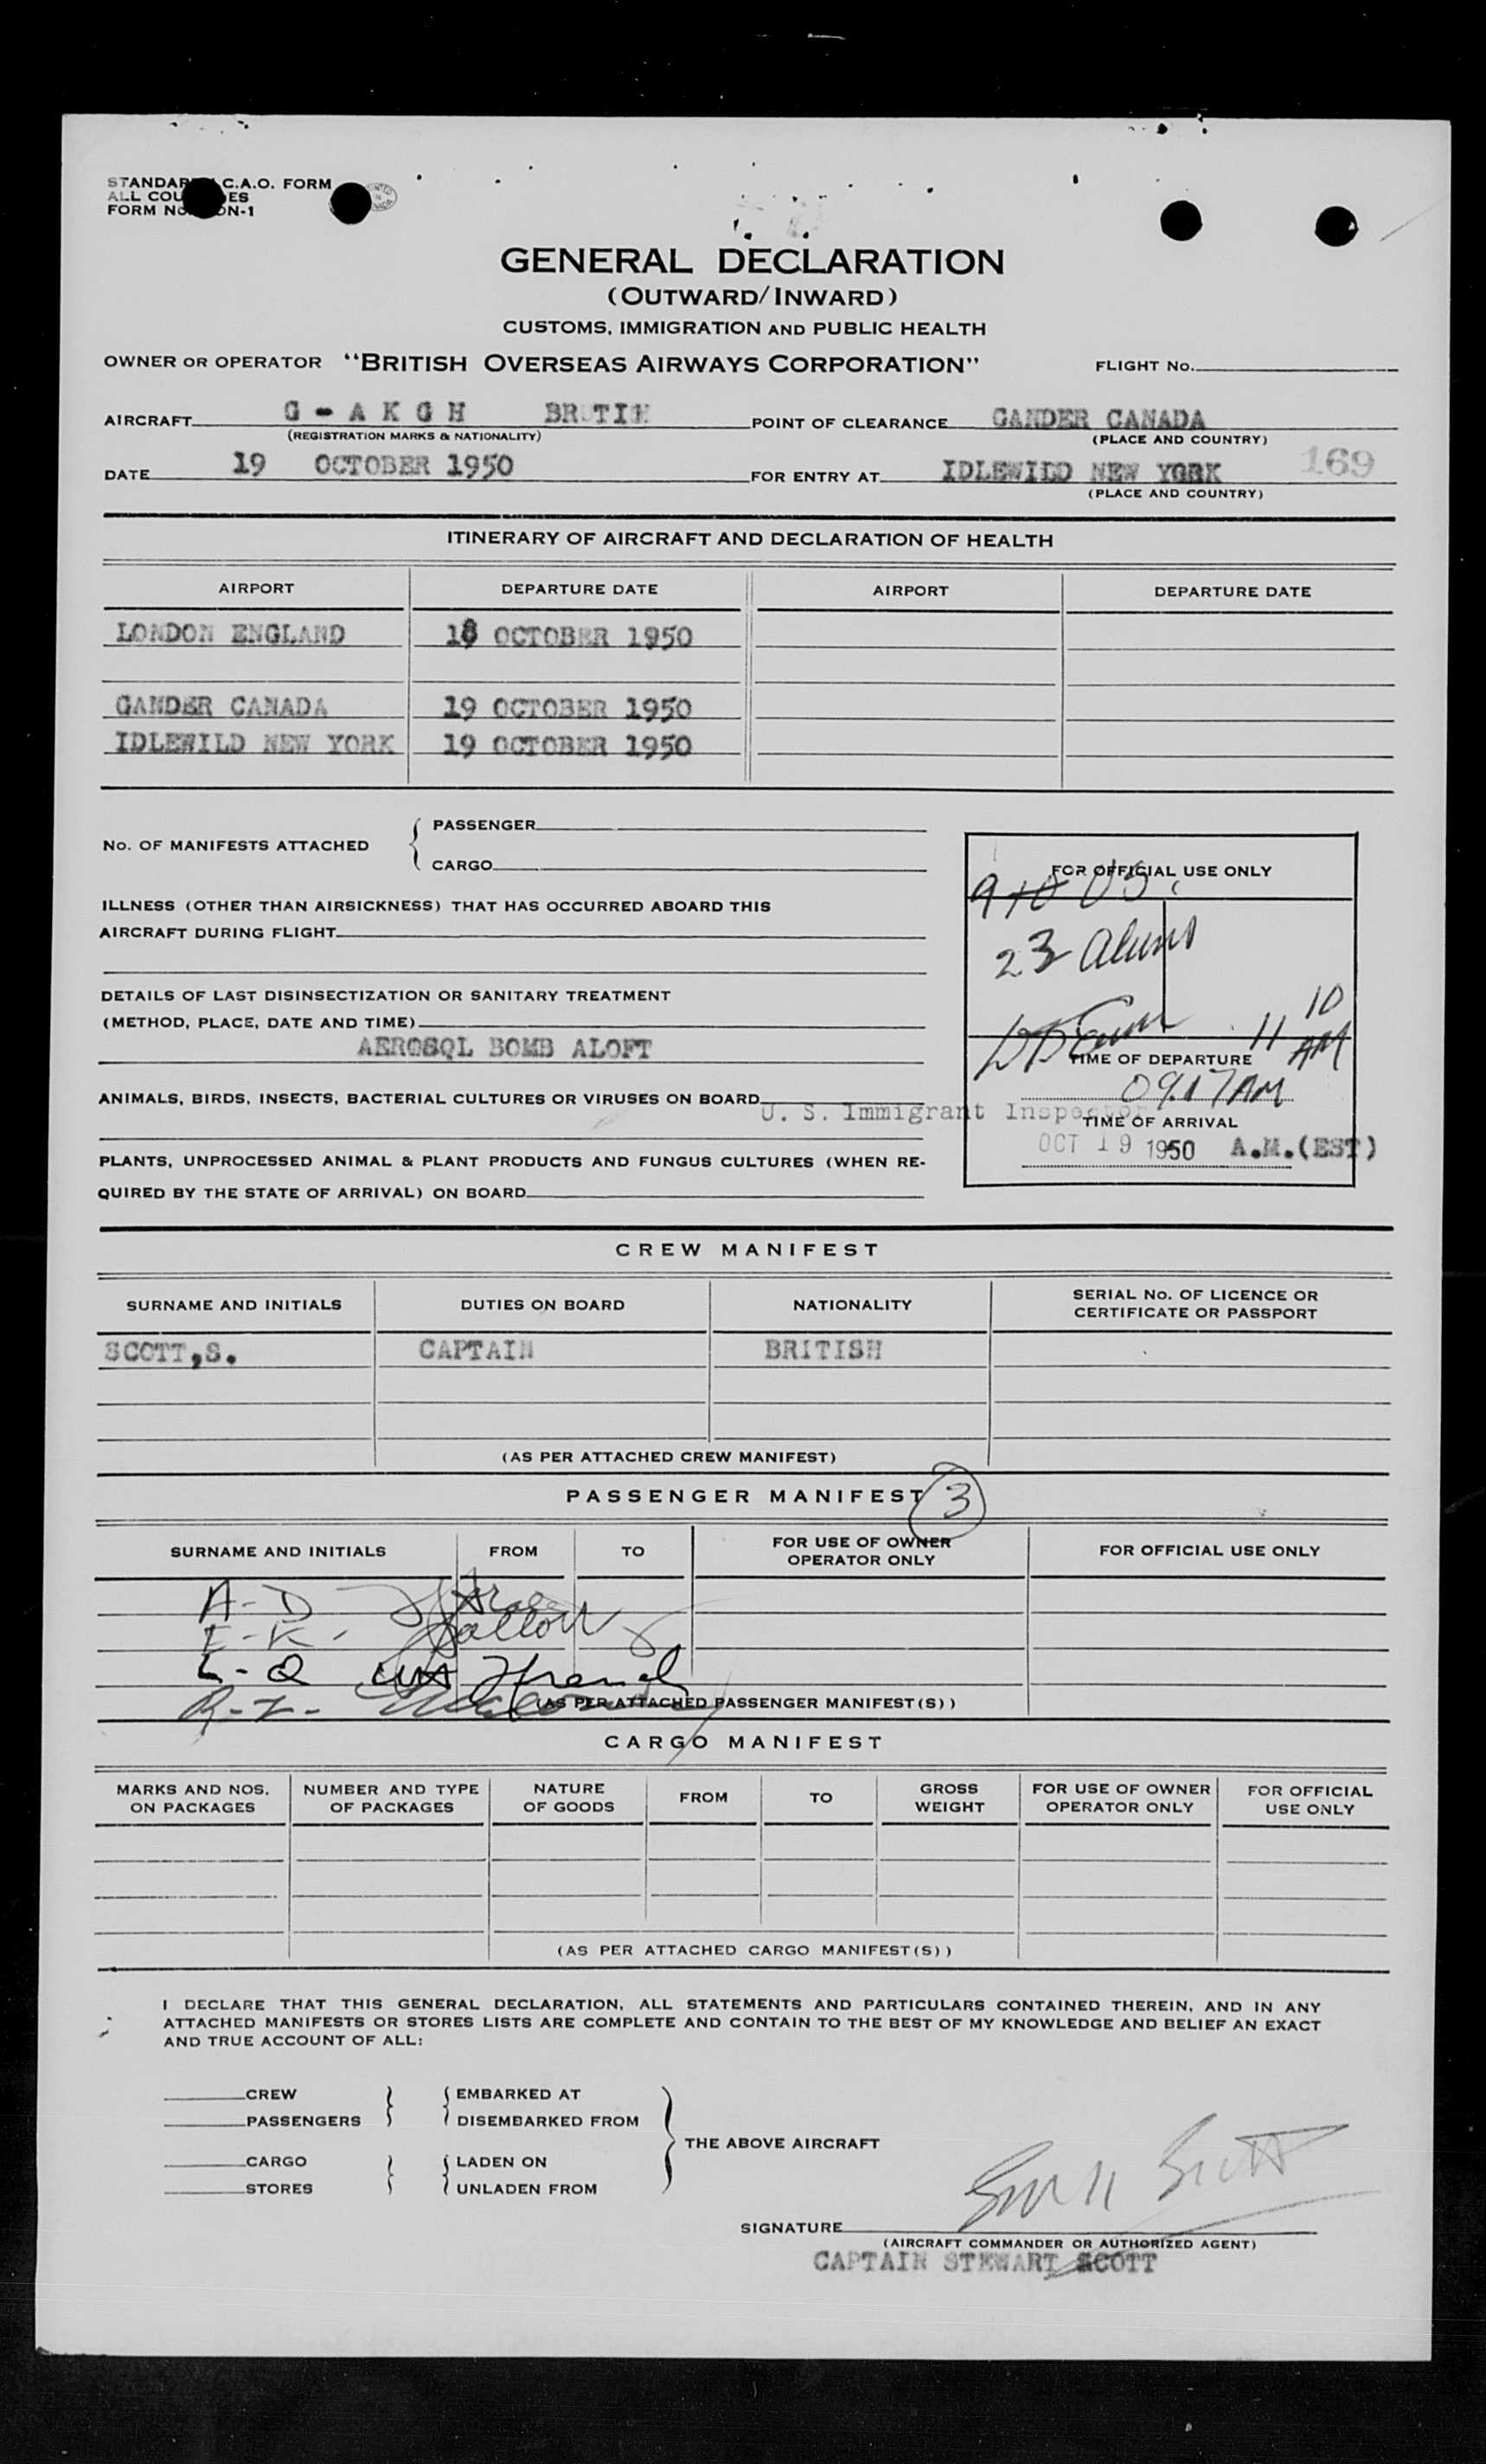 STANDARD I.C.A.O. FORM
ALL COUNTRIES
FORM No. ON-1
GENERAL DECLARATION
(OUTWARD/INWARD)
CUSTOMS, IMMIGRATION AND PUBLIC HEALTH
OWNER OR OPERATOR "BRITISH OVERSEAS AIRWAYS CORPORATION" FLIGHT No.
AIRCRAFT G - A K G H POINT OF CLEARANCE GANDER CANADA
(REGISTRATION MARKS & NATIONALITY) (PLACE AND COUNTRY)
DATE 19 OCTOBER 1950 FOR ENTRY AT IDLEWILD NEW YORK 169
(PLACE AND COUNTRY)
ITINERARY OF AIRCRAFT AND DECLARATION OF HEALTH
AIRPORT DEPARTURE DATE AIRPORT DEPARTURE DATE
LONDON ENGLAND 18 OCTOBER 1950
GANDER CANADA 19 OCTOBER 1950
IDLEWILD NEW YORK 19 OCTOBER 1950
No. OF MANIFESTS ATTACHED { PASSENGER
CARGO
FOR OFFICIAL USE ONLY
ILLNESS (OTHER THAN AIRSICKNESS) THAT HAS OCCURRED ABOARD THIS
AIRCRAFT DURING FLIGHT
23 Aliens
DETAILS OF LAST DISINSECTIZATION OR SANITARY TREATMENT
(METHOD, PLACE, DATE AND TIME)
AEROSOL BOMB ALOFT
11 10 AM
TIME OF DEPARTURE
09.17 AM
ANIMALS, BIRDS, INSECTS, BACTERIAL CULTURES OR VIRUSES ON BOARD
U. S. Immigrant Inspector
TIME OF ARRIVAL
OCT 19 1950 A.M.(EST)
PLANTS, UNPROCESSED ANIMAL & PLANT PRODUCTS AND FUNGUS CULTURES (WHEN RE-
QUIRED BY THE STATE OF ARRIVAL) ON BOARD
CREW MANIFEST
SURNAME AND INITIALS DUTIES ON BOARD NATIONALITY SERIAL No. OF LICENCE OR CERTIFICATE OR PASSPORT
SCOTT,S. CAPTAIN BRITISH
(AS PER ATTACHED CREW MANIFEST)
PASSENGER MANIFEST 3
SURNAME AND INITIALS FROM TO FOR USE OF OWNER OPERATOR ONLY FOR OFFICIAL USE ONLY
A-D
E-K-
L-Q
R-Z-
(AS PER ATTACHED PASSENGER MANIFEST(S))
CARGO MANIFEST
MARKS AND NOS. ON PACKAGES NUMBER AND TYPE OF PACKAGES NATURE OF GOODS FROM TO GROSS WEIGHT FOR USE OF OWNER OPERATOR ONLY FOR OFFICIAL USE ONLY
(AS PER ATTACHED CARGO MANIFEST(S))
I DECLARE THAT THIS GENERAL DECLARATION, ALL STATEMENTS AND PARTICULARS CONTAINED THEREIN, AND IN ANY
ATTACHED MANIFESTS OR STORES LISTS ARE COMPLETE AND CONTAIN TO THE BEST OF MY KNOWLEDGE AND BELIEF AN EXACT
AND TRUE ACCOUNT OF ALL:
CREW EMBARKED AT
PASSENGERS DISEMBARKED FROM
THE ABOVE AIRCRAFT
CARGO LADEN ON
STORES UNLADEN FROM
SIGNATURE
(AIRCRAFT COMMANDER OR AUTHORIZED AGENT)
CAPTAIN STEWART SCOTT